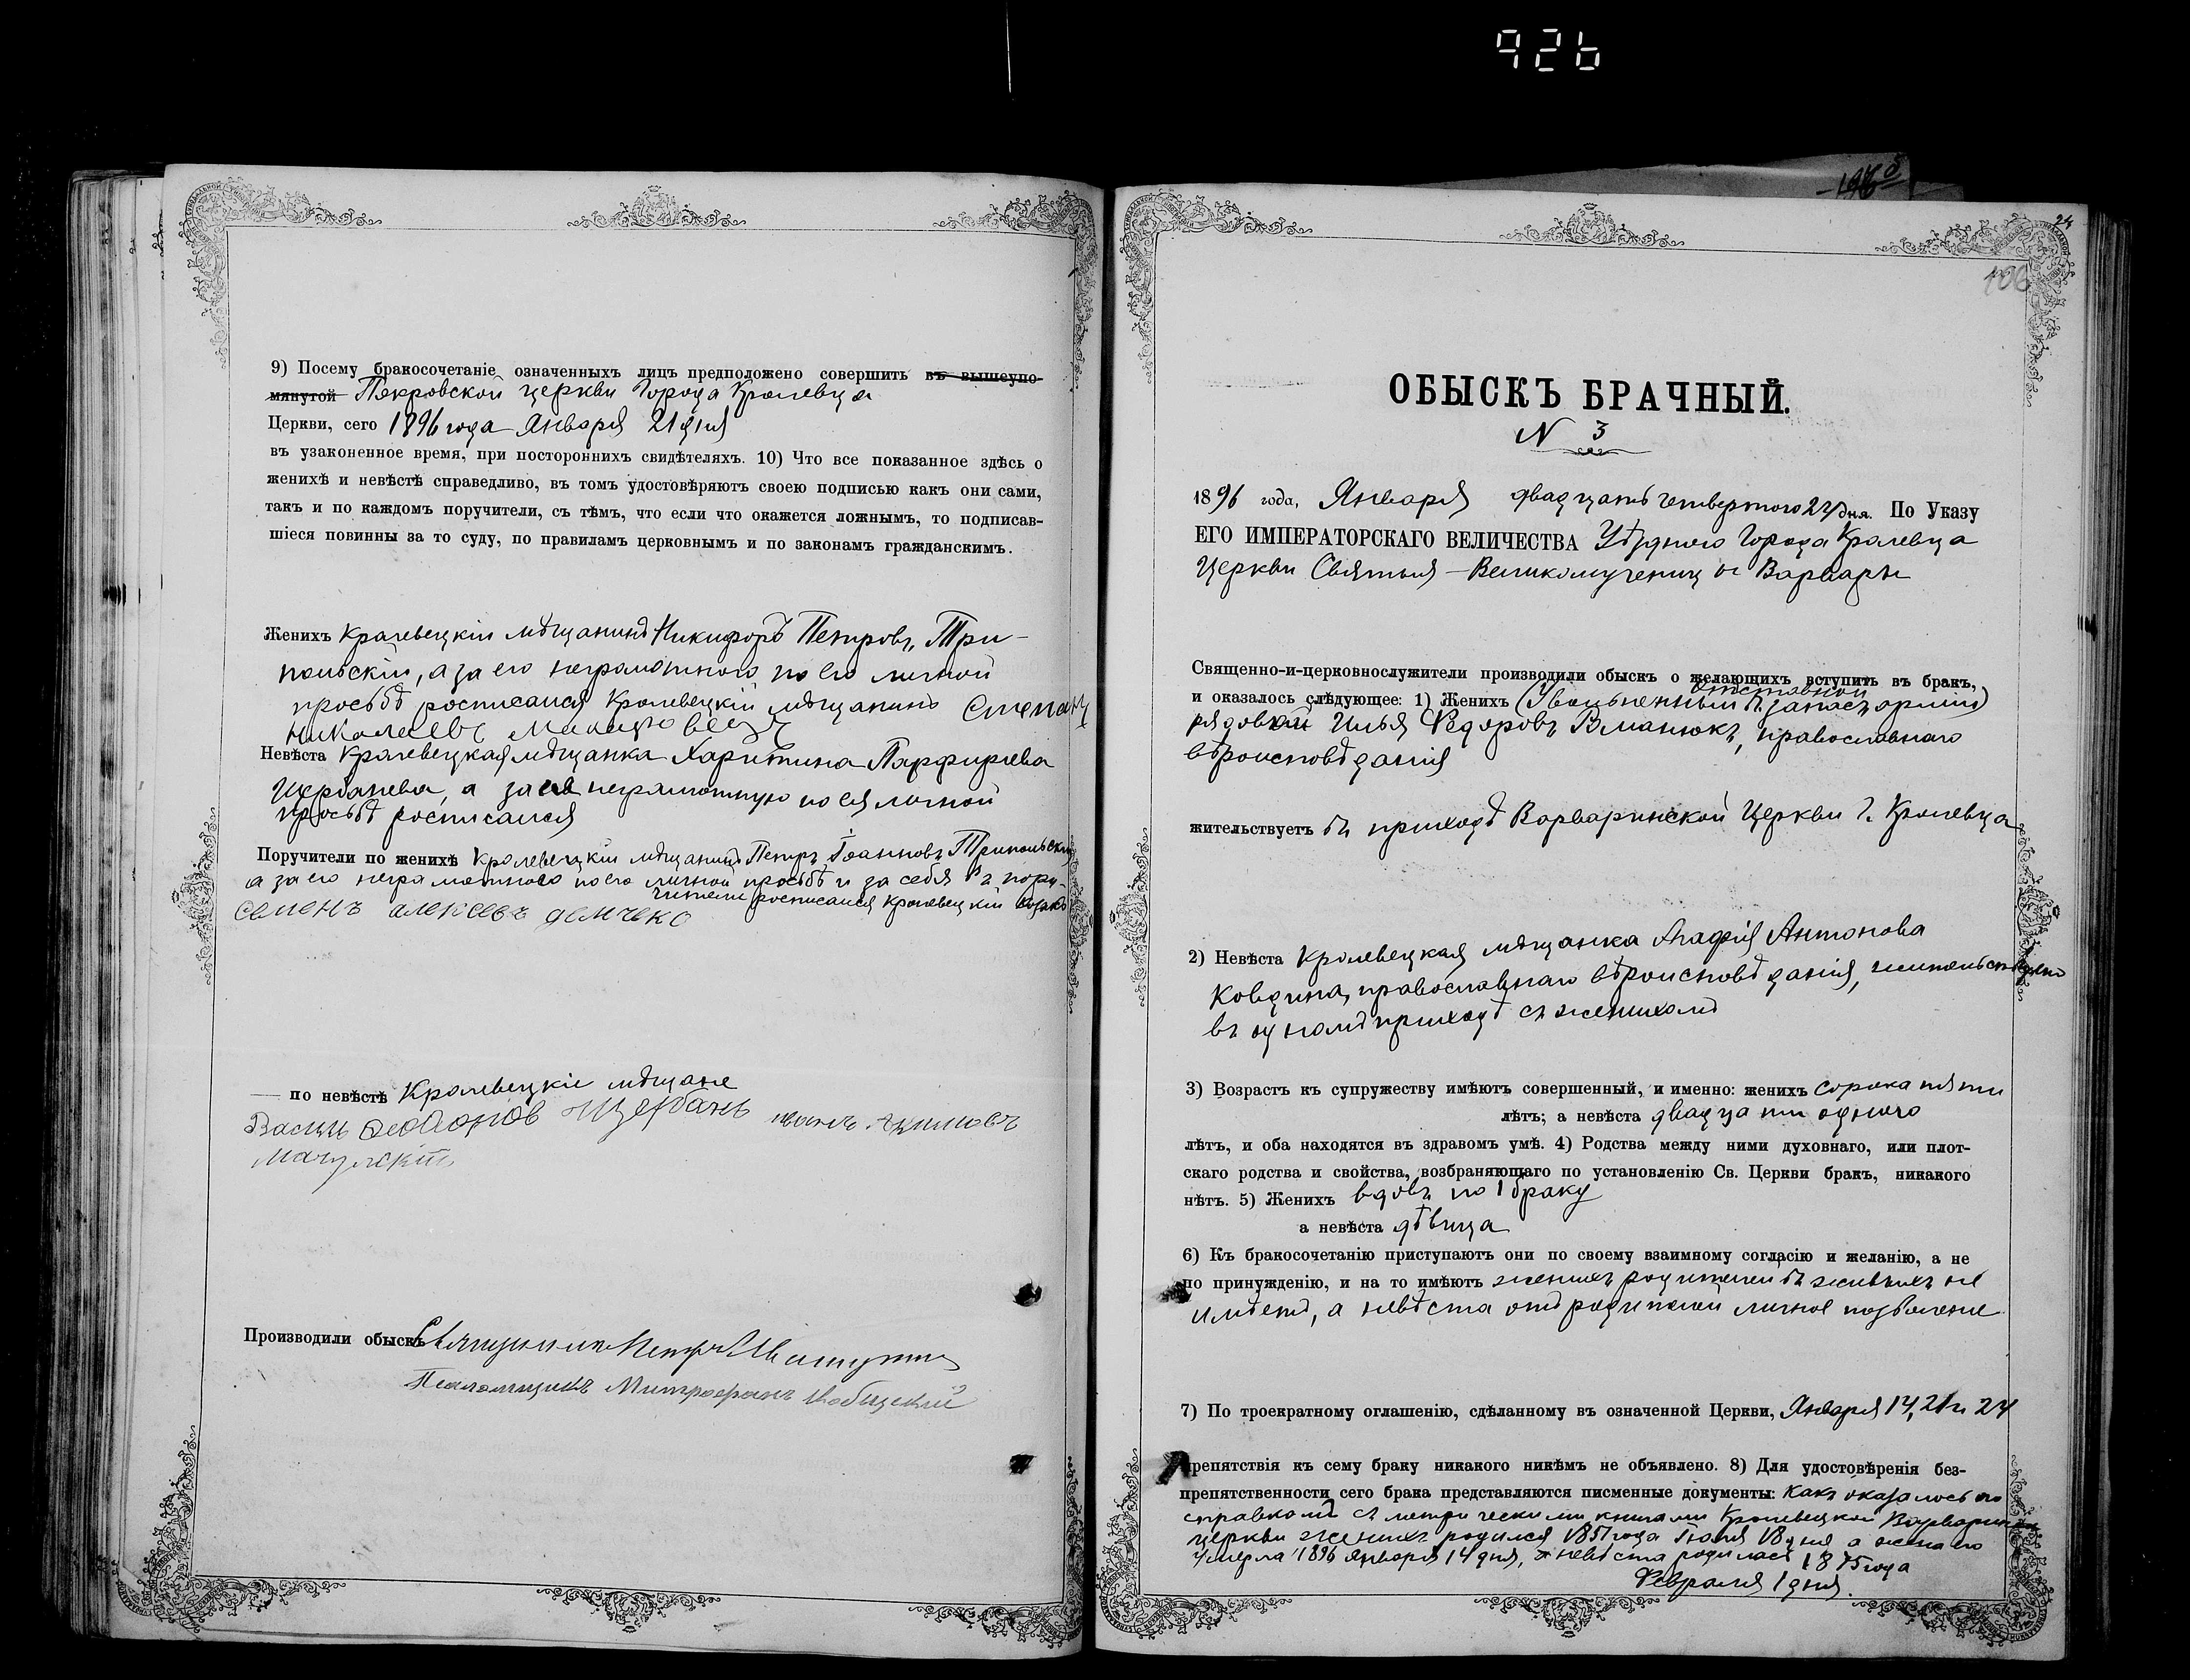 926
9) Посему бракосочетаніе означенныхъ лицъ предположено совершить въ вышеупо-
мянутой Покровской церкви Города Кролевца
Церкви, сего 1896 года Января 21 дня
въ узаконенное время, при постороннихъ свидѣтеляхъ. 10) Что все показанное здѣсь о
женихѣ и невѣстѣ справедливо, въ томъ удостовѣряютъ своею подписью какъ они сами,
такъ и по каждомъ поручители, съ тѣмъ, что если что окажется ложнымъ, то подписав-
шіеся повинны за то суду, по правиламъ церковнымъ и по законамъ гражданскимъ.
Женихъ Кралевецкій мѣщанинъ Никифоръ Петровъ Три-
польскій, а за его неграмотного по его личной
просьбѣ росписался Кролевецкій мѣщанинъ Степанъ
Николаевъ
Невѣста Кралевецкая мѣщанка Харитина Парфирьева
Щербанева, а за ее неграмотную по ея личной
просьбѣ росписался
Поручители по женихѣ Кролевецкій мѣщанинъ Петръ Іоанновъ Трипольскій
а за его неграмотного по его личной просьбѣ и за себя въ пору-
чители росписался Кролевецкій козакъ
Семенъ алексевъ демчеко
— по невѣстѣ Кролевецкіе мѣщане
Щербань
Производили обыскъ Священникъ Петръ
Псаломщикъ Митрофанъ
24
106
ОБЫСКЪ БРАЧНЫЙ.
N 3
1896 года, Января двадцать четвертого 24 дня. По Указу
ЕГО ИМПЕРАТОРСКАГО ВЕЛИЧЕСТВА Уѣзднаго Города Кролевца
Церкви Святыя Великомученицы Варвары
Священно-и-церковнослужители производили обыскъ о желающихъ вступить въ бракъ,
и оказалось слѣдующее: 1) Женихъ (Увольненный въ запасъ арміи) отставной
рядовой Илья Федоровъ Вманюкъ, православнаго
вѣроисповѣданія
жительствуетъ въ приходѣ Варваринской Церкви г. Кролевца
2) Невѣста Кролевецкая мѣщанка Агафія Антонова
Ковдина, православнаго вѣроисповѣданія, жительствуетъ
въ одномъ приходѣ съ женихомъ
3) Возрастъ къ супружеству имѣютъ совершенный, и именно: женихъ сорока пяти
лѣтъ; а невѣста двадцати одного
лѣтъ, и оба находятся въ здравомъ умѣ. 4) Родства между ними духовнаго, или плот-
скаго родства и свойства, возбраняющаго по установленію Св. Церкви бракъ, никакого
нѣтъ. 5) Женихъ вдовъ по 1 браку
а невѣста дѣвица
6) Къ бракосочетанію приступаютъ они по своему взаимному согласію и желанію, а не
по принужденію, и на то имѣютъ женихъ родителей въ живыхъ не
имѣетъ, а невѣста отъ родителей личное позволеніе
7) По троекратному оглашенію, сдѣланному въ означенной Церкви, Января 14, 21 и 24
препятствія къ сему браку никакого никѣмъ не объявлено. 8) Для удостовѣренія без-
препятственности сего брака представляются писменные документы: какъ оказалось по
справкамъ съ метрическими книгами Кролевецкой Варваринской
церкви женихъ родился 1851 года Іюля 18 дня а жена его
умерла 1896 Января 14 дня, а невѣста родилась 1875 года
Февраля 1 дня.